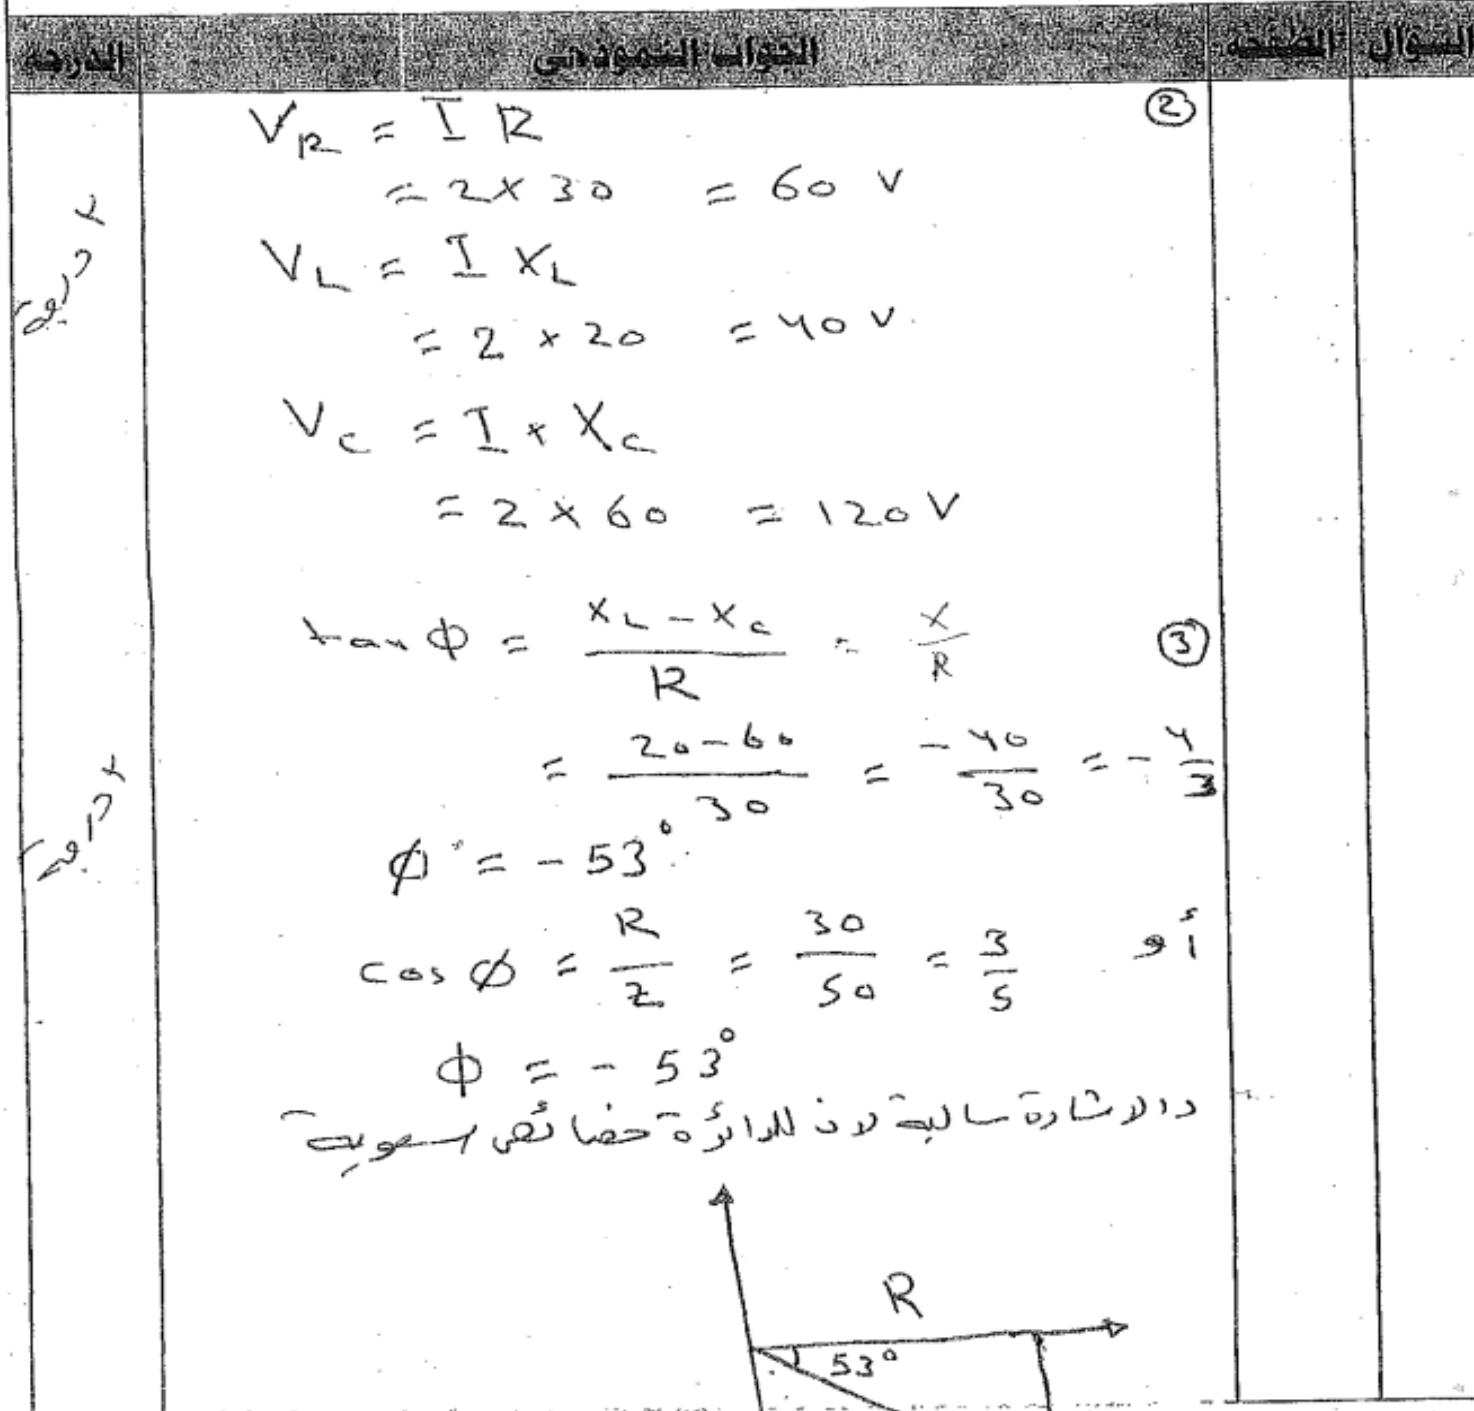 السؤال الصفحة الجواب النموذجي الدرجة
②
V_R = I R
= 2 × 30 = 60 V
V_L = I X_L
= 2 × 20 = 40 V
V_C = I × X_C
= 2 × 60 = 120 V
③
tan Φ = (X_L - X_C) / R = X / R
= (20 - 60) / 30 = -40 / 30 = -4 / 3
Φ = - 53°
أو
cos Φ = R / Z = 30 / 50 = 3 / 5
Φ = - 53°
والاشارة سالبة لان للدائرة خصائص سعوية
R
53°
درجة
درجة